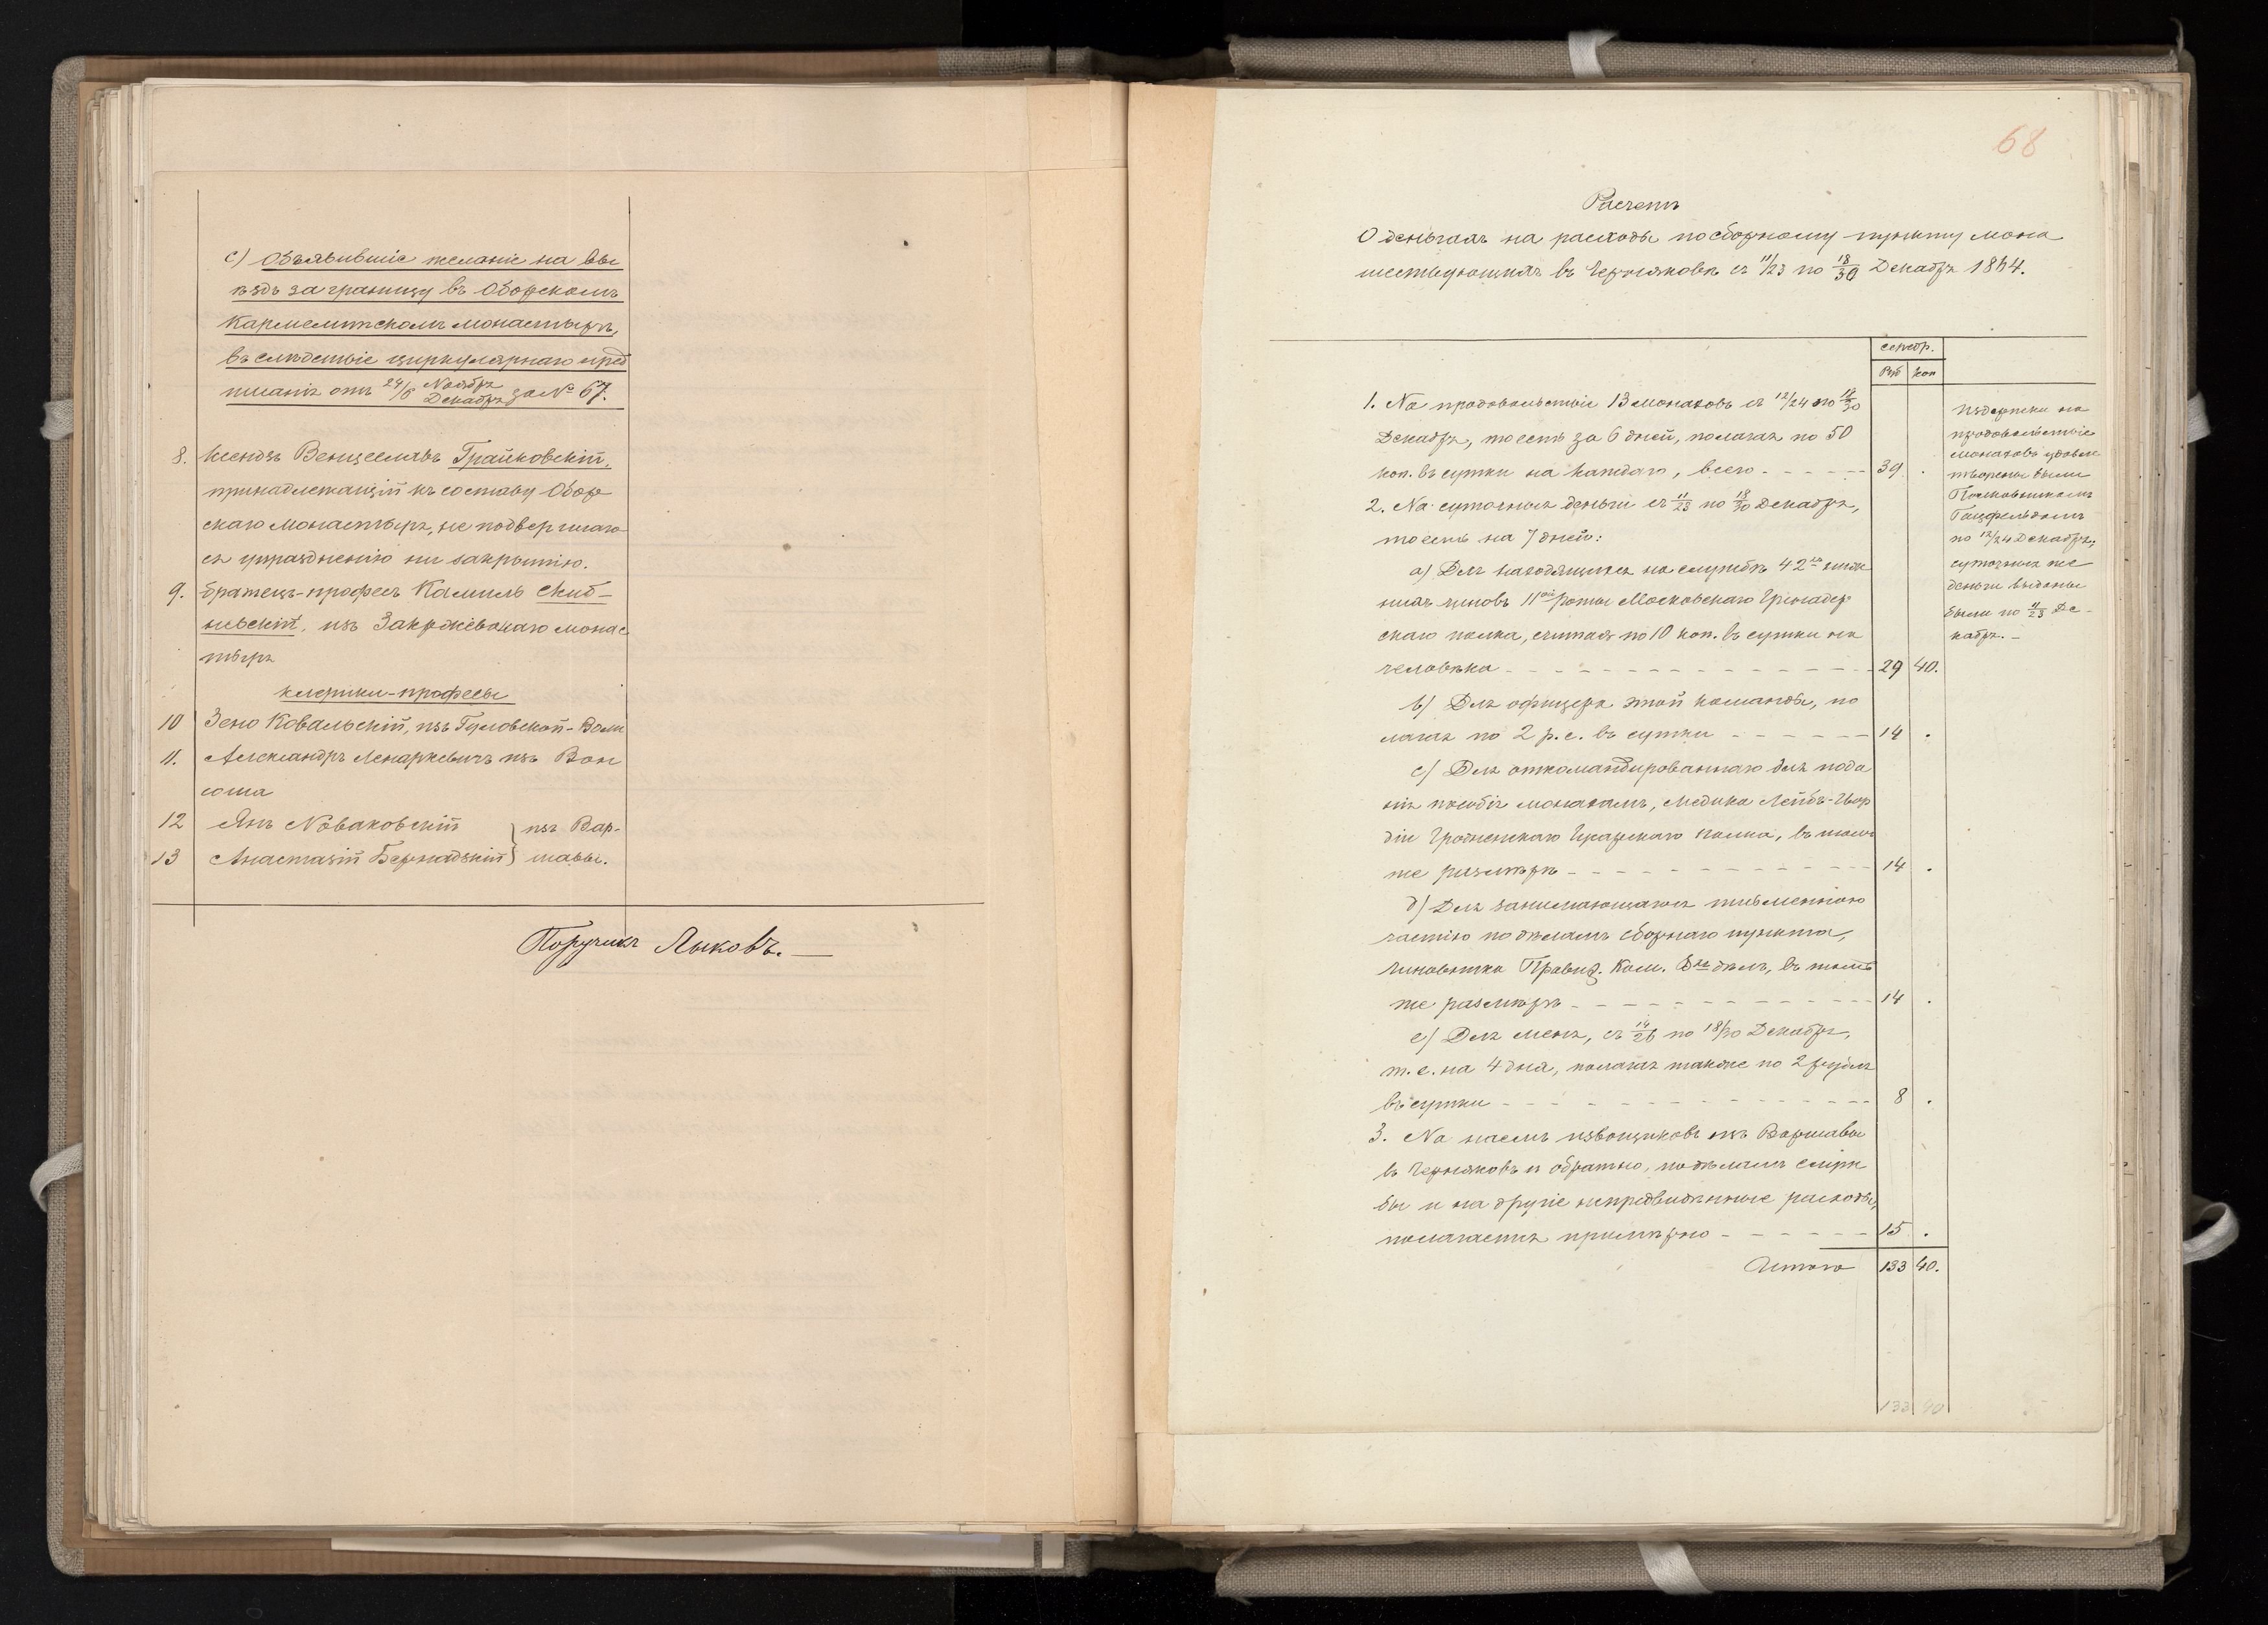 с) Объявившіе желаніе на вы
ѣздъ за границу въ Оборскомъ
Кармелитскомъ монастырѣ,
въ слѣдствіе циркулярнаго пред
писанія отъ 24/6 Ноября/Декабря за № 67.
8. Ксендзъ Венцеславъ Грайковскій,
принадлежащій къ составу Обор
скаго монастыря, не подвергшаго
ся упраздненію ни закрытію.
9. братецъ-професъ Камиль Скиб-
невскій, изъ Закржевскаго монас
тыря
клерики-професы
10 Зено Ковальскій, изъ Гуловской-Воли
11. Александръ Ленаркевичъ изъ Вон
соша
12 Янъ Новаковскій } изъ Вар-
13 Анастазій Бернадзкій } шавы.
Поручикъ Лыковъ.—
68
Расчетъ
О деньгахъ на расходы по сборному пункту мона
шествующихъ въ Черняковѣ съ 11/23 по 18/30 Декабря 1864.
серебр.
Руб коп
1. На продовольствіе 13 монаховъ съ 12/24 по 18/30
Декабря, то есть за 6 дней, полагая по 50
коп. въ сутки на каждаго, всего - - - - - 39 .
2. На суточныя деньги съ 11/23 по 18/30 Декабря,
то есть на 7 дней:
а) Для находящихся на службѣ 42хъ ниж
нихъ чиновъ 11ой роты Московскаго Гренадер
скаго полка, считая по 10 коп. въ сутки на
человѣка - - - - - 29 40.
b) Для офицера этой команды, по
лагая по 2 р. с. въ сутки - - - - - 14 .
с) Для откомандированнаго для пода
нія пособія монахамъ, медика Лейбъ-Гвар
діи Гродненскаго Гусарскаго полка, въ томъ
же размѣрѣ - - - - - 14 .
д) Для занимающагося письменною
частію по дѣламъ сборнаго пункта,
чиновника Правит. Ком. Внъ дѣлъ, въ томъ
же размѣрѣ - - - - - 14 .
е) Для меня, съ 14/26 по 18/30 Декабря,
т. е. на 4 дня, полагая также по 2 рубля
въ сутки - - - - - 8 .
3. На наемъ извощиковъ изъ Варшавы
въ Черняковъ и обратно, по дѣламъ служ
бы и на другіе непредвидѣнные расходы,
полагается примѣрно - - - - - 15 .
Итого 133 40.
Издержки на
продовольствіе
монаховъ удовле
творены были
Полковникомъ
Гацфельдомъ
по 12/24 Декабря;
суточныя же
деньги выданы
были по 11/23 Де-
кабря.—
133 40